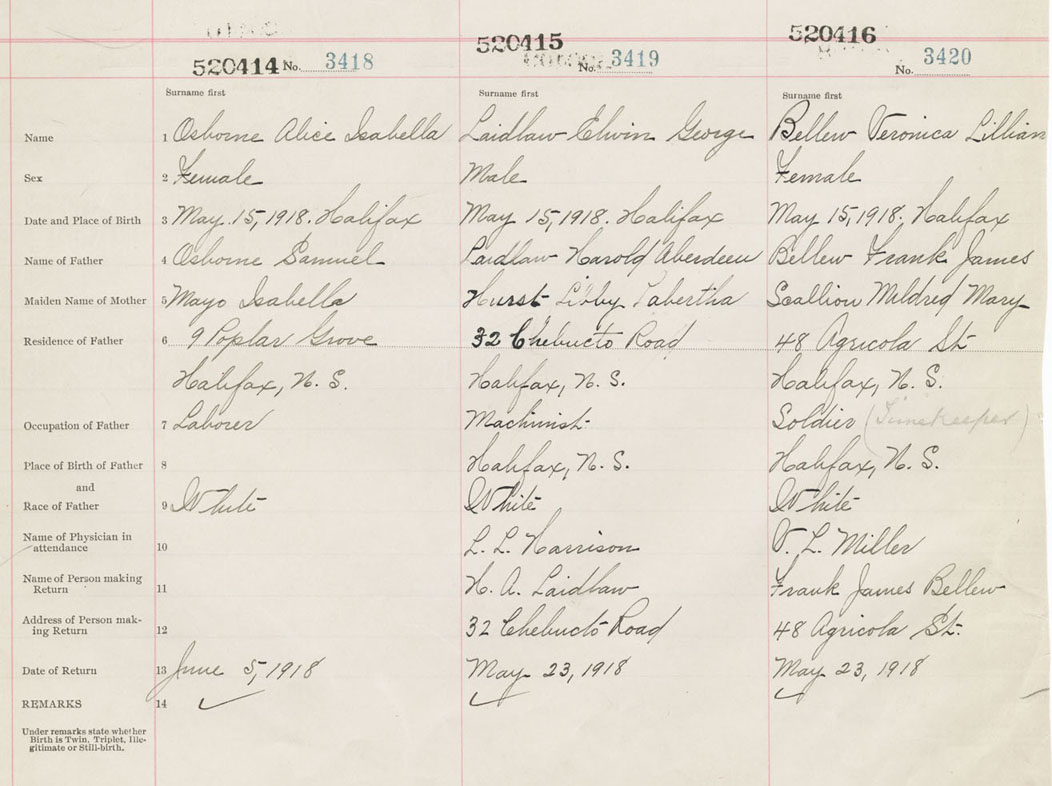 520414 No. 3418 520415 No. 3419 520416 No. 3420
Surname first Surname first Surname first
Name 1 Osborne Alice Isabella Laidlaw Elwin George Bellew Veronica Lillian
Sex 2 Female Male Female
Date and Place of Birth 3 May 15, 1918. Halifax May 15, 1918. Halifax May 15, 1918. Halifax
Name of Father 4 Osborne Samuel Laidlaw Harold Aberdeen Bellew Frank James
Maiden Name of Mother 5 Mayo Isabella Hurst Libby Tabertha Scallion Mildred Mary
Residence of Father 6 9 Poplar Grove 32 Chebucto Road 48 Agricola St.
Halifax, N. S. Halifax, N. S. Halifax, N. S.
Occupation of Father 7 Laborer Machinist Soldier (Timekeeper)
Place of Birth of Father 8 Halifax, N. S. Halifax, N. S.
and
Race of Father 9 White White White
Name of Physician in
attendance 10 L. L. Harrison V. L. Miller
Name of Person making
Return 11 H. A. Laidlaw Frank James Bellew
Address of Person mak-
ing Return 12 32 Chebucto Road 48 Agricola St.
Date of Return 13 June 5, 1918 May 23, 1918 May 23, 1918
REMARKS 14 ✓ ✓ ✓
Under remarks state whether
Birth is Twin, Triplet, Ille-
gitimate or Still-birth.